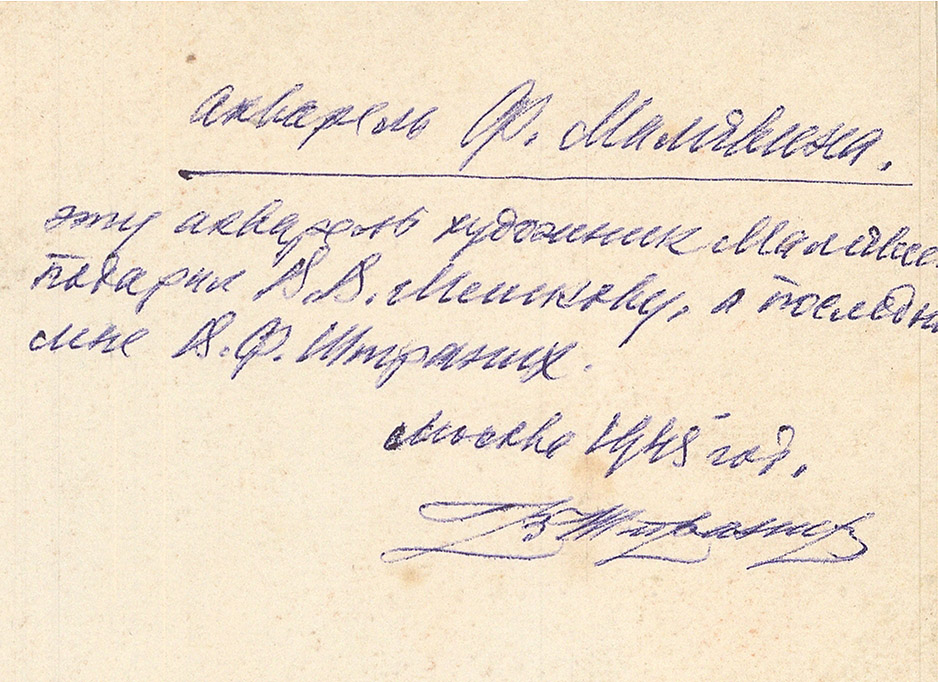 акварель Ф. Малявина.
эту акварель художник Малявин
подарил В.В. Мешкову, а последн
мне В.Ф. Штраних.
Москва 1945 год.
ВШтраних